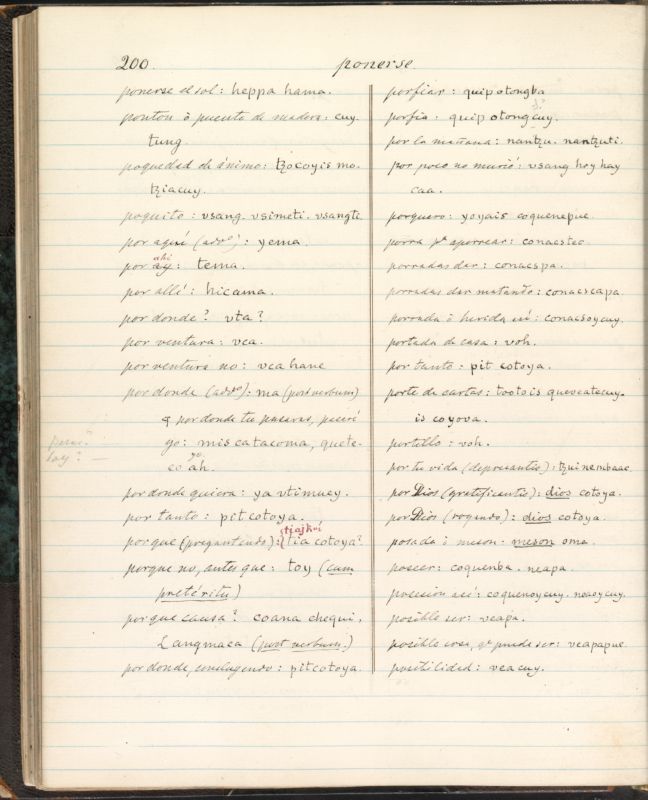 200.
ponerse
ponerse el sol: heppa hama.
ponton ò puente de madera: cuy.
tung.
poquedad de ánimo: tzocoyis mo.
tziacuy.
poquito: vsang. vsimeti. vsangti.
por aqui (advo): yema.
por ay: tema.
ahi
por allí: hicama.
por donde? vta?
por ventura: vca.
por ventura no: vca hane
por donde (advo): ma (post verbum)
por donde tu pasaras,
go: mis catacoma, quete.
co ah.
yo
por donde quiera: ya vtimucy.
por tanto: pit cotoya.
tiajkuí
porque (preguntando): tia cotoya?
porque no, antes que: toy (cum
pretéritu)
porque causa? coana chequi.
Langmaca (post verbum.)
por donde, concluyendo: pitcotoya.
porfiar: quipotongba
porfia: quip otongcuy.
por la mañana: nantzu. nantzuti.
por poco no murió: vsang hoy hay
caa.
porquero: yoyais coquenepue.
porra pa aporrear: conacstec.
porradas dar: conacspa.
porradas dar matando: conacscapa.
porrada ò herida así: conacsoycuy.
portada de casa: voh.
por tanto: pit cotoya.
porte de cartas: totois quevcatecuy.
is coyova.
portillo: voh.
por tu vida (deprecantis): tzuinembaac.
por Dios (gratificantis): dios cotoya.
por Dios (rogando): dios cotoya.
posada ò meson: meson oma.
poseer: coquenba. neapa.
posesion así: coquenoycuy. neaoycuy.
posible ser: vcapa.
posible cosa, qe puede ser: vcapapue.
posibilidad: vcacuy.